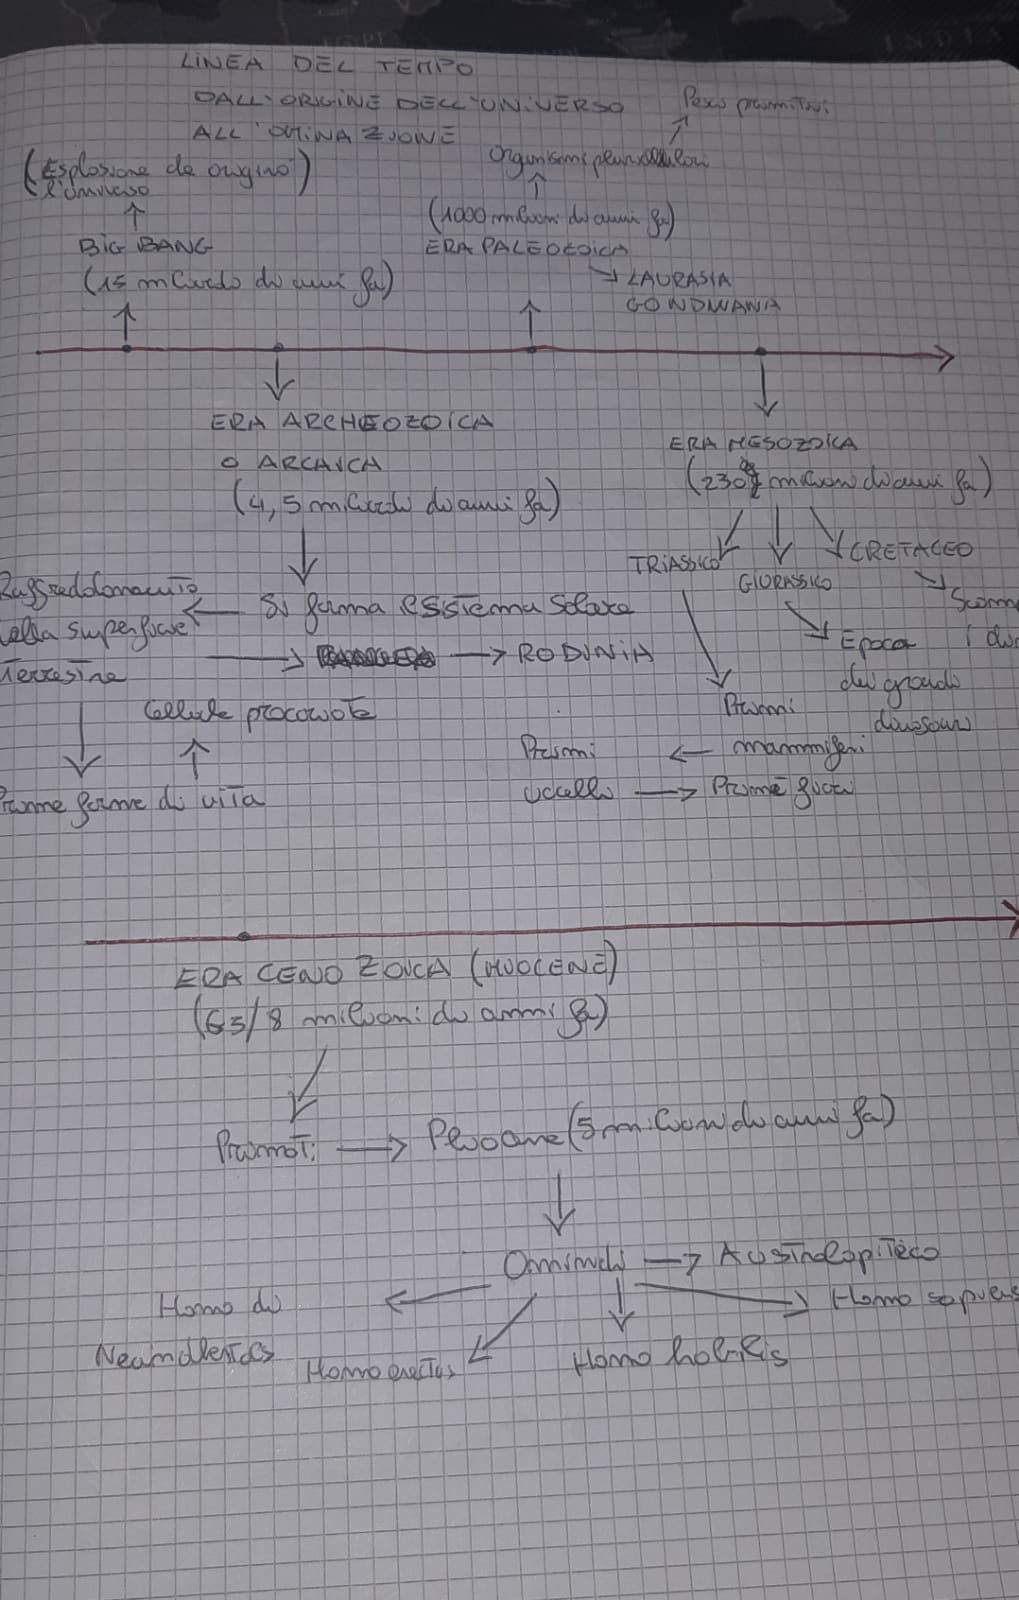 LINEA DEL TEMPO
DALL'ORIGINE DELL'UNIVERSO
ALL'
Pesci primitivi
Organismi pluricellulari
(Esplosione da origine
l'universo)
(1000 milioni di anni fa)
BIG BANG
ERA PALEOZOICA
(15 miliardi di anni fa)
LAURASIA
GONDWANA
ERA ARCHEOZOICA
O ARCAICA
(4,5 miliardi di anni fa)
ERA MESOZOICA
(230 milioni di anni fa)
TRIASSICO
GIURASSICO
CRETACEO
Raffreddamento
della superficie
Terrestre
Si forma il sistema solare
RODINIA
Epoca
dei grandi
dinosauri
Cellule procariote
Prime forme di vita
Primi
mammiferi
Primi
uccelli
Prime fiori
ERA CENOZOICA (MIOCENE)
(65/8 milioni di anni fa)
Primati
Pliocene (5 milioni di anni fa)
Ominidi
Australopiteco
Homo di
Neandertal
Homo erectus
Homo habilis
Homo sapiens